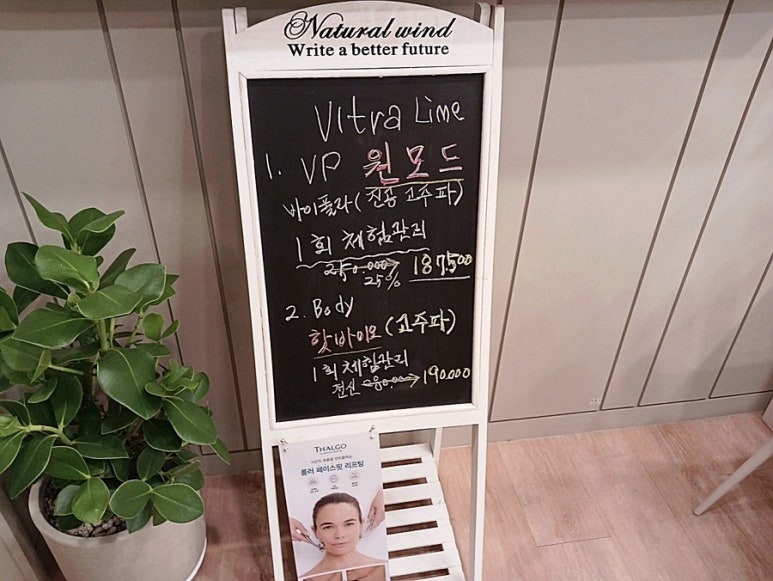 Natural wind
Write a better future
Vitra Lime
1. VP 원모드
바이폴라(진공 고주파)
1회 체험관리
250.000→ 187500
25%
2. Body
핫바이오(고주파)
1회 체험관리
전신 →190.000
THALGO
롤러 페이스핏 리프팅